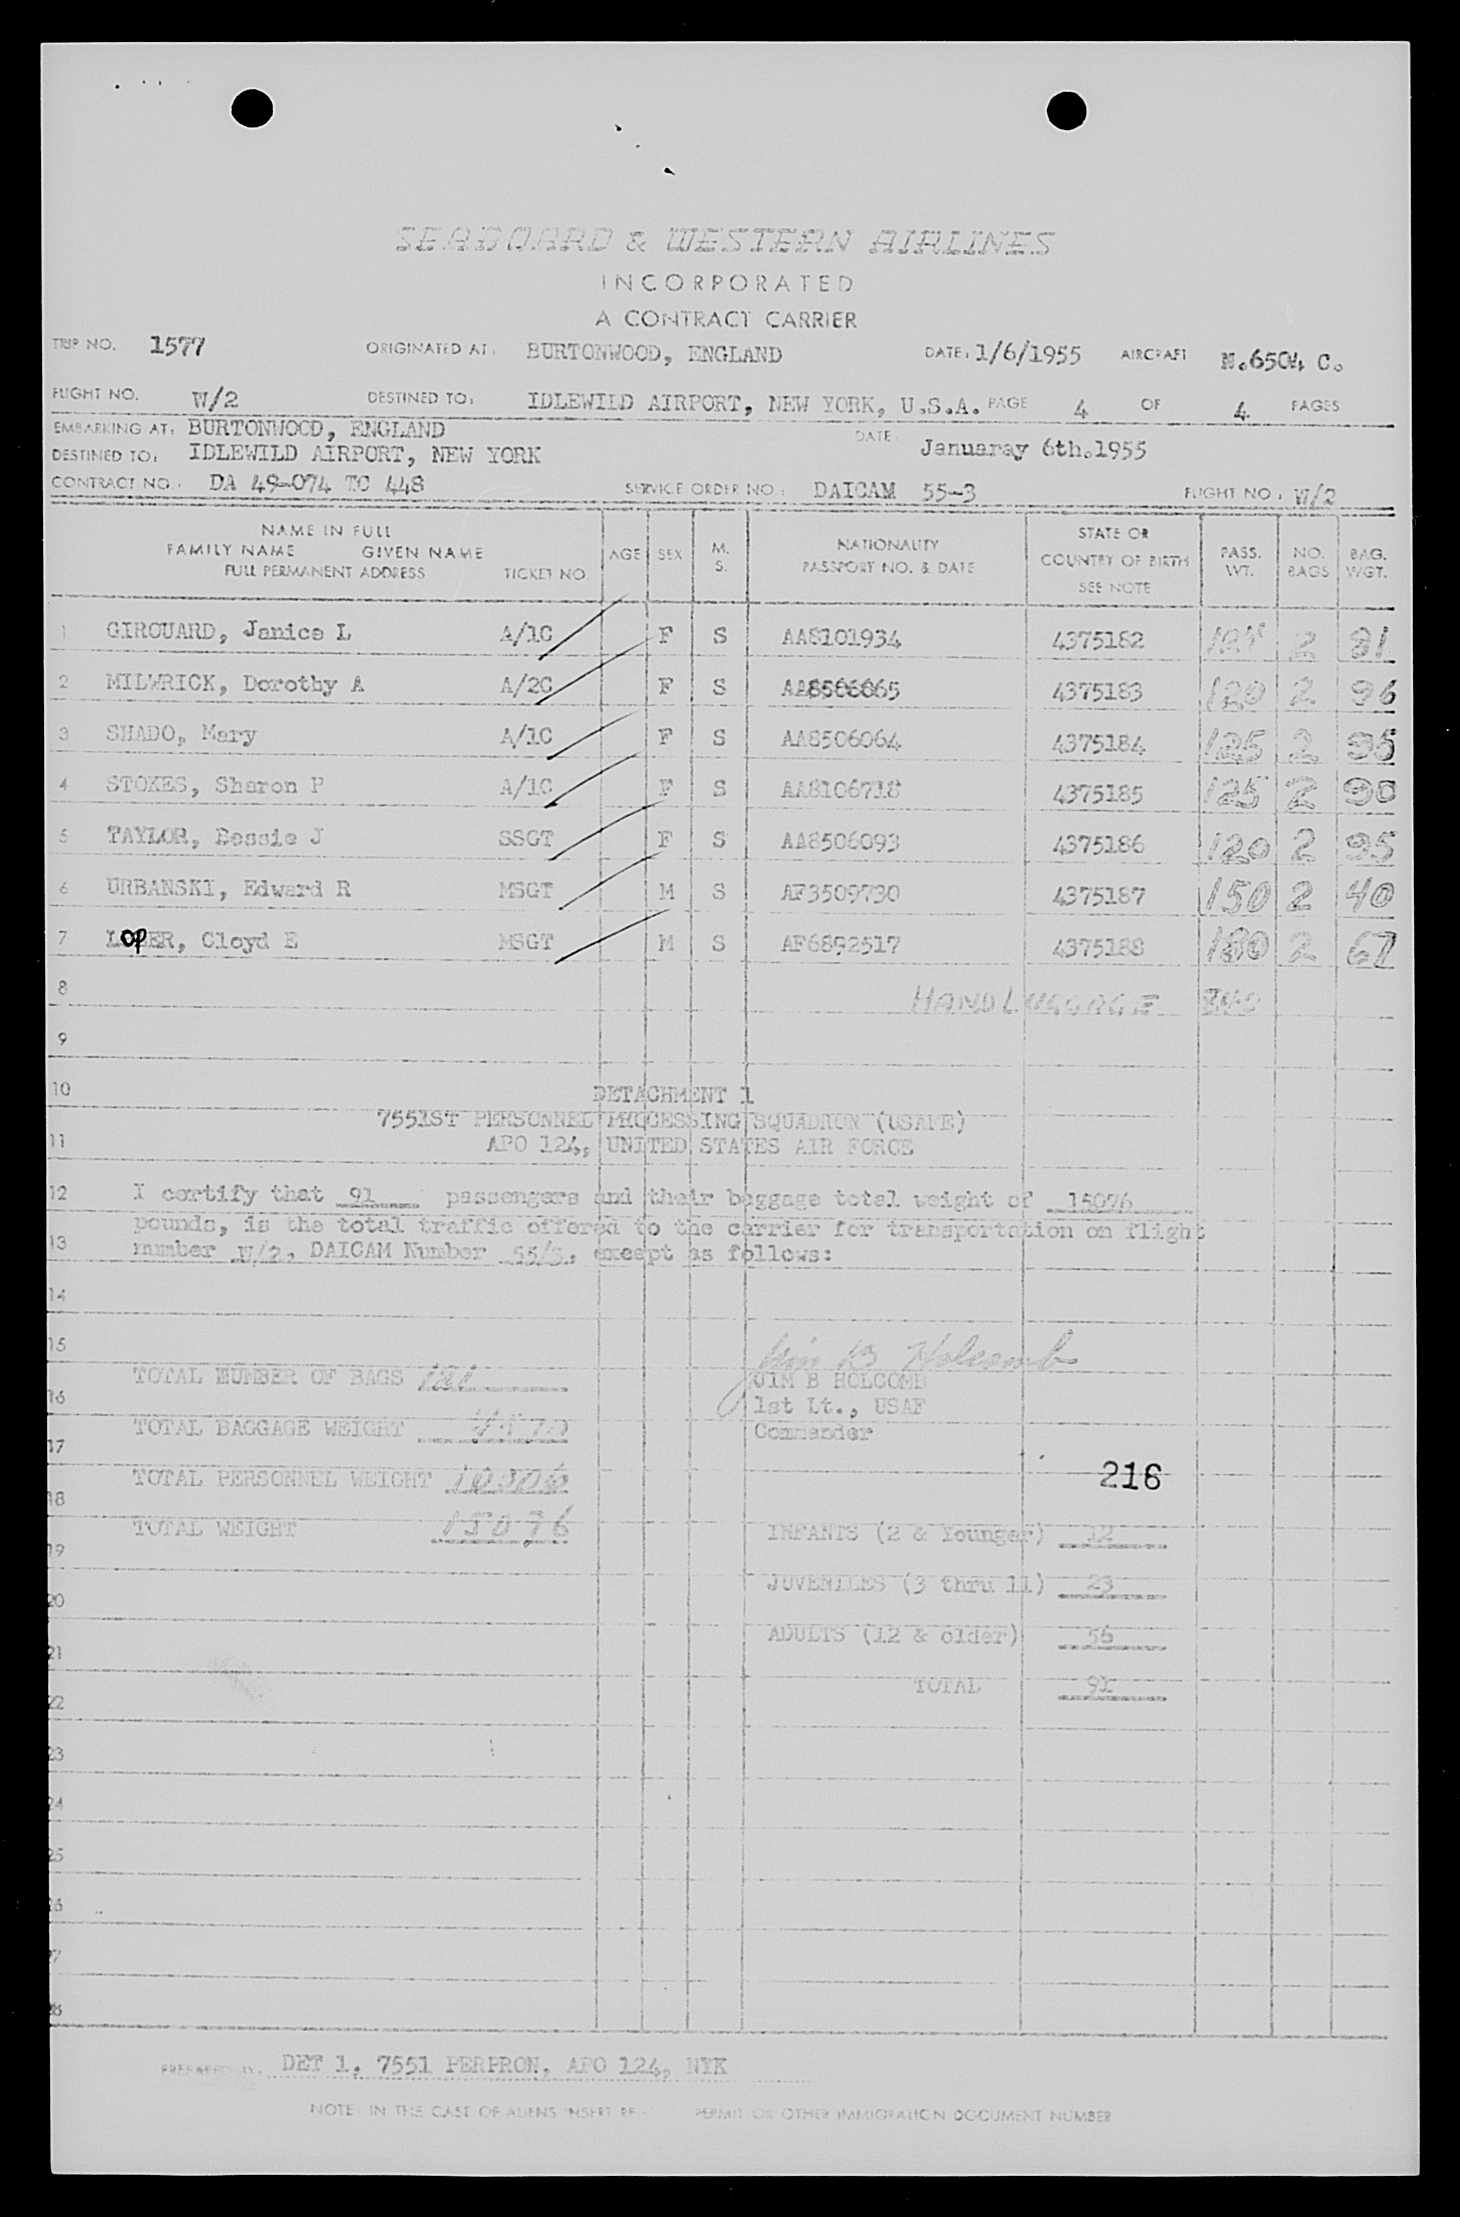 SEABOARD & WESTERN AIRLINES
INCORPORATED
A CONTRACT CARRIER
TRIP NO. 1577 ORIGINATED AT: BURTONWOOD, ENGLAND DATE: 1/6/1955 AIRCRAFT N.6504 C.
FLIGHT NO. W/2 DESTINED TO: IDLEWILD AIRPORT, NEW YORK, U.S.A. PAGE 4 OF 4 PAGES
EMBARKING AT: BURTONWOOD, ENGLAND DATE: Januaray 6th.1955
DESTINED TO: IDLEWILD AIRPORT, NEW YORK
CONTRACT NO.: DA 49-074 TC 448 SERVICE ORDER NO.: DAICAM 55-3 FLIGHT NO.: W/2
NAME IN FULL
FAMILY NAME GIVEN NAME
FULL PERMANENT ADDRESS TICKET NO. AGE SEX M. S. NATIONALITY PASSPORT NO. & DATE STATE OR COUNTRY OF BIRTH SEE NOTE PASS. WT. NO. BAGS BAG. WGT.
1 GIROUARD, Janice L A/1C F S AA8101934 4375182 2 91
2 MILWRICK, Dorothy A A/2C F S 4375183 120 2 96
3 SHADO, Mary A/1C F S AA8506064 4375184 125 2 95
4 STOKES, Sharon P A/1C F S AA8106718 4375185 125 2 90
5 TAYLOR, Bessie J SSGT F S AA8506093 4375186 120 2 95
6 URBANSKI, Edward R MSGT M S AF3509730 4375187 150 2 40
7 LOPER, Cloyd E MSGT M S AF6892517 4375188 180 2 67
8 HAND LUGGAGE
9
10 DETACHMENT 1
7551ST PERSONNEL PROCESSING SQUADRON (USAFE)
11 APO 124, UNITED STATES AIR FORCE
12 I certify that 91 passengers and their baggage total weight of 15076
pounds, is the total traffic offered to the carrier for transportation on flight
13 number W/2, DAICAM Number 55/3, except as follows:
14
15 Jim B Holcomb
TOTAL NUMBER OF BAGS 121 JIM B HOLCOMB
16 1st Lt., USAF
TOTAL BAGGAGE WEIGHT Commander
17
TOTAL PERSONNEL WEIGHT 216
18
TOTAL WEIGHT 15076 INFANTS (2 & Younger) 12
19
JUVENILES (3 thru 11) 23
20
ADULTS (12 & older) 56
21
TOTAL 91
22
23
24
25
26
27
28
PREPARED BY: DET 1, 7551 PERPRON, APO 124, NYK
NOTE: IN THE CASE OF ALIENS INSERT RE- PERMIT OR OTHER IMMIGRATION DOCUMENT NUMBER